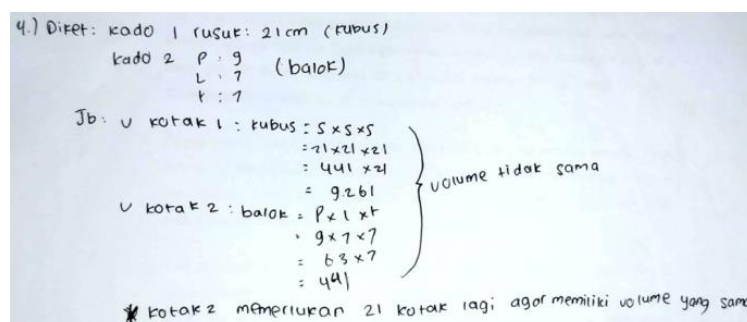 4.) Diket: kado 1 rusuk: 21 cm (kubus)
kado 2 P : 9
L : 7
t : 7
(balok)
Jb: V kotak 1 : kubus = S x S x S
= 21 x 21 x 21
= 441 x 21
= 9.261
V kotak 2 : balok = P x l x t
= 9 x 7 x 7
= 63 x 7
= 441
volume tidak sama
* kotak 2 memerlukan 21 kotak lagi agar memiliki volume yang sama